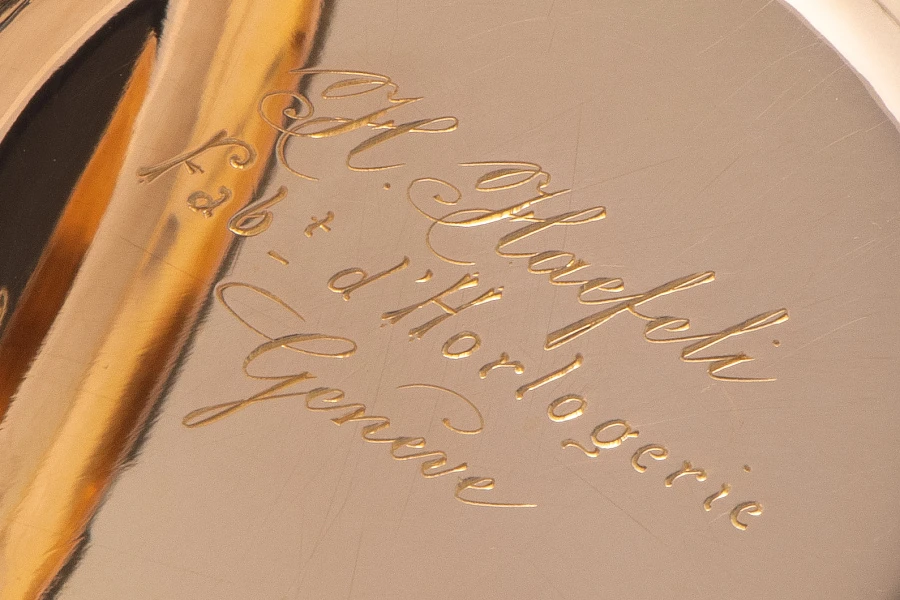 H. Haefeli
Fabt. d'Horlogerie
Genève